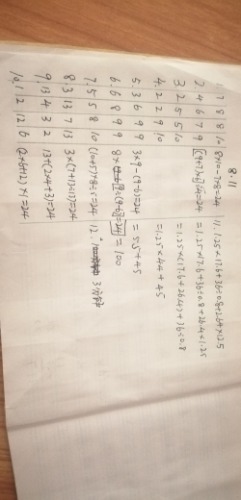 8.11
7 8 8 10 11. 1.25×17.6+36÷0.8+2.64×12.5
2. 4 6 7 9 =1.25×17.6+36÷0.8+26.4×1.25
3. 2 5 5 10 =1.25×(17.6+26.4)+36÷0.8
4. 2 2 9 10 =1.25×44+45
5. 3 6 9 9 3×9-(9-6)=24 =55+45
6. 6 8 9 9 =100
7. 5 5 8 10 12.
8. 3 13 7 13 3×(7+13÷13)=24
9. 13 4 3 2 13+(2×4+3)=24
10. 1 2 12 6 (2×6+12)×1=24